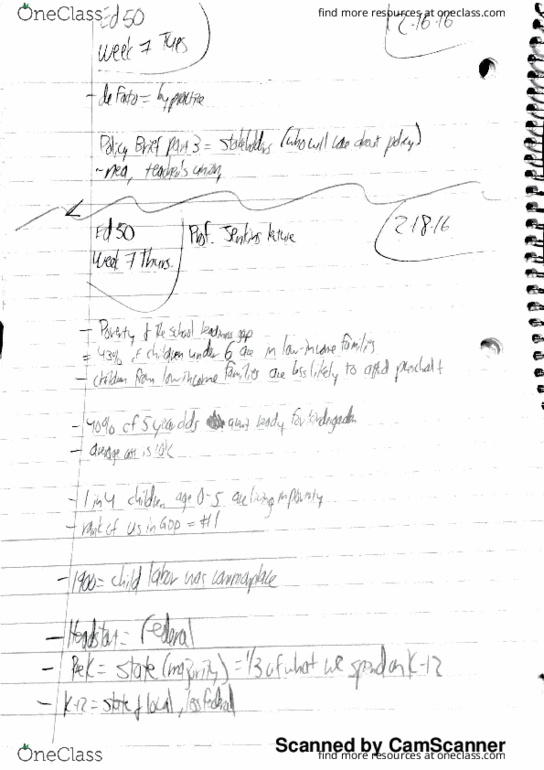 OneClass
find more resources at oneclass.com
Ed 50
2-16-16
week 7 Tues
- de facto = by practice
Policy Brief part 3 = stakeholders (who will care about policy)
~ nea, teacher's union
Ed 50
Prof. Jenkins lecture
2-18-16
Week 7 Thurs.
- Poverty & the school readiness gap
= 43% of children under 6 are in low-income families
- children from low income families are less likely to attend preschool
- 40% of 5 year olds aren't ready for kindergarten
- average is 10K
- 1 in 4 children age 0-5 are living in poverty
- rank of US in GDP = #1
- 1900 = child labor was commonplace
- Headstart = Federal
- PreK = state (majority) = 1/3 of what we spend on K-12
- K-12 = state & local, less federal
Scanned by CamScanner
OneClass
find more resources at oneclass.com